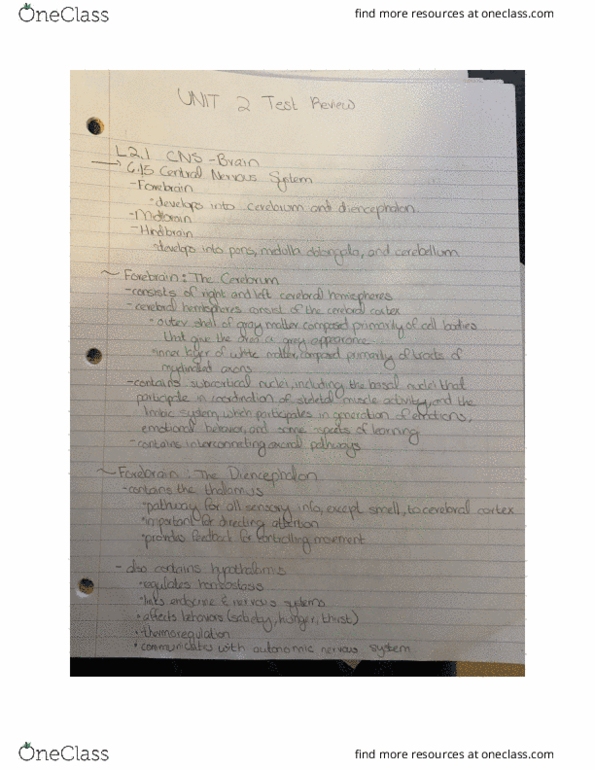 OneClass
find more resources at oneclass.com
UNIT 2 Test Review
L2.1 CNS - Brain
→ 6.15 Central Nervous System
- Forebrain
develops into cerebrum and diencephalon.
- Midbrain
- Hindbrain
develops into pons, medulla oblongata, and cerebellum
~ Forebrain: The Cerebrum
- consists of right and left cerebral hemispheres
- cerebral hemispheres consist of the cerebral cortex
• outer shell of gray matter composed primarily of cell bodies
that give the area a gray appearance
• inner layer of white matter, composed primarily of tracts of
myelinated axons
- contains subcortical nuclei, including the basal nuclei that
participate in coordination of skeletal muscle activity, and the
limbic system, which participates in generation of emotions,
emotional behavior, and some aspects of learning
- contains interconnecting axonal pathways
~ Forebrain: The Diencephalon
- contains the thalamus
• pathway for all sensory info, except smell, to cerebral cortex
• important for directing attention
• provides feedback for controlling movement
- also contains hypothalamus
• regulates homeostasis
• links endocrine & nervous systems
• affects behaviors (satiety, hunger, thirst)
• thermoregulation
• communicates with autonomic nervous system
OneClass
find more resources at oneclass.com